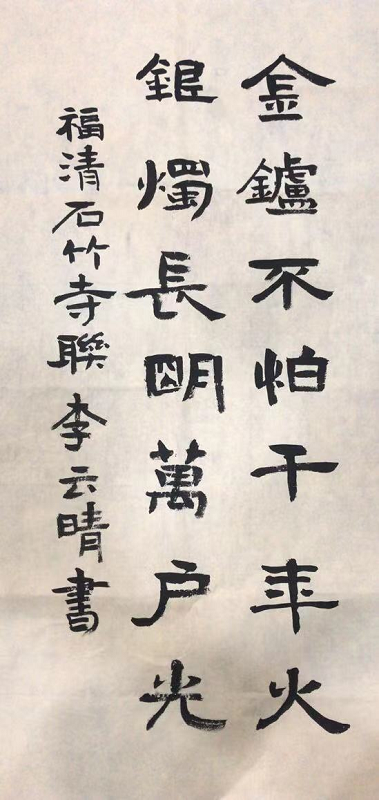 金鑪不怕千年火
銀燭長明萬户光
福清石竹寺聯李云晴書